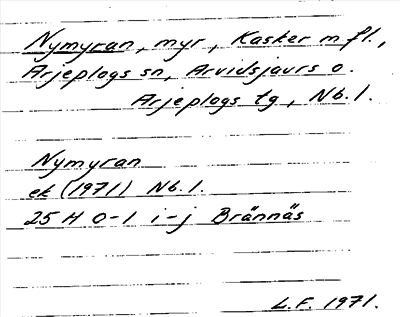 Nymyran, myr, Kasker m fl.,
Arjeplogs sn, Arvidsjaurs o.
Arjeplogs tg, Nb.l.
Nymyran
ek (1971) Nb.l.
25 H 0-1 i-j Brännäs
L.F. 1971.